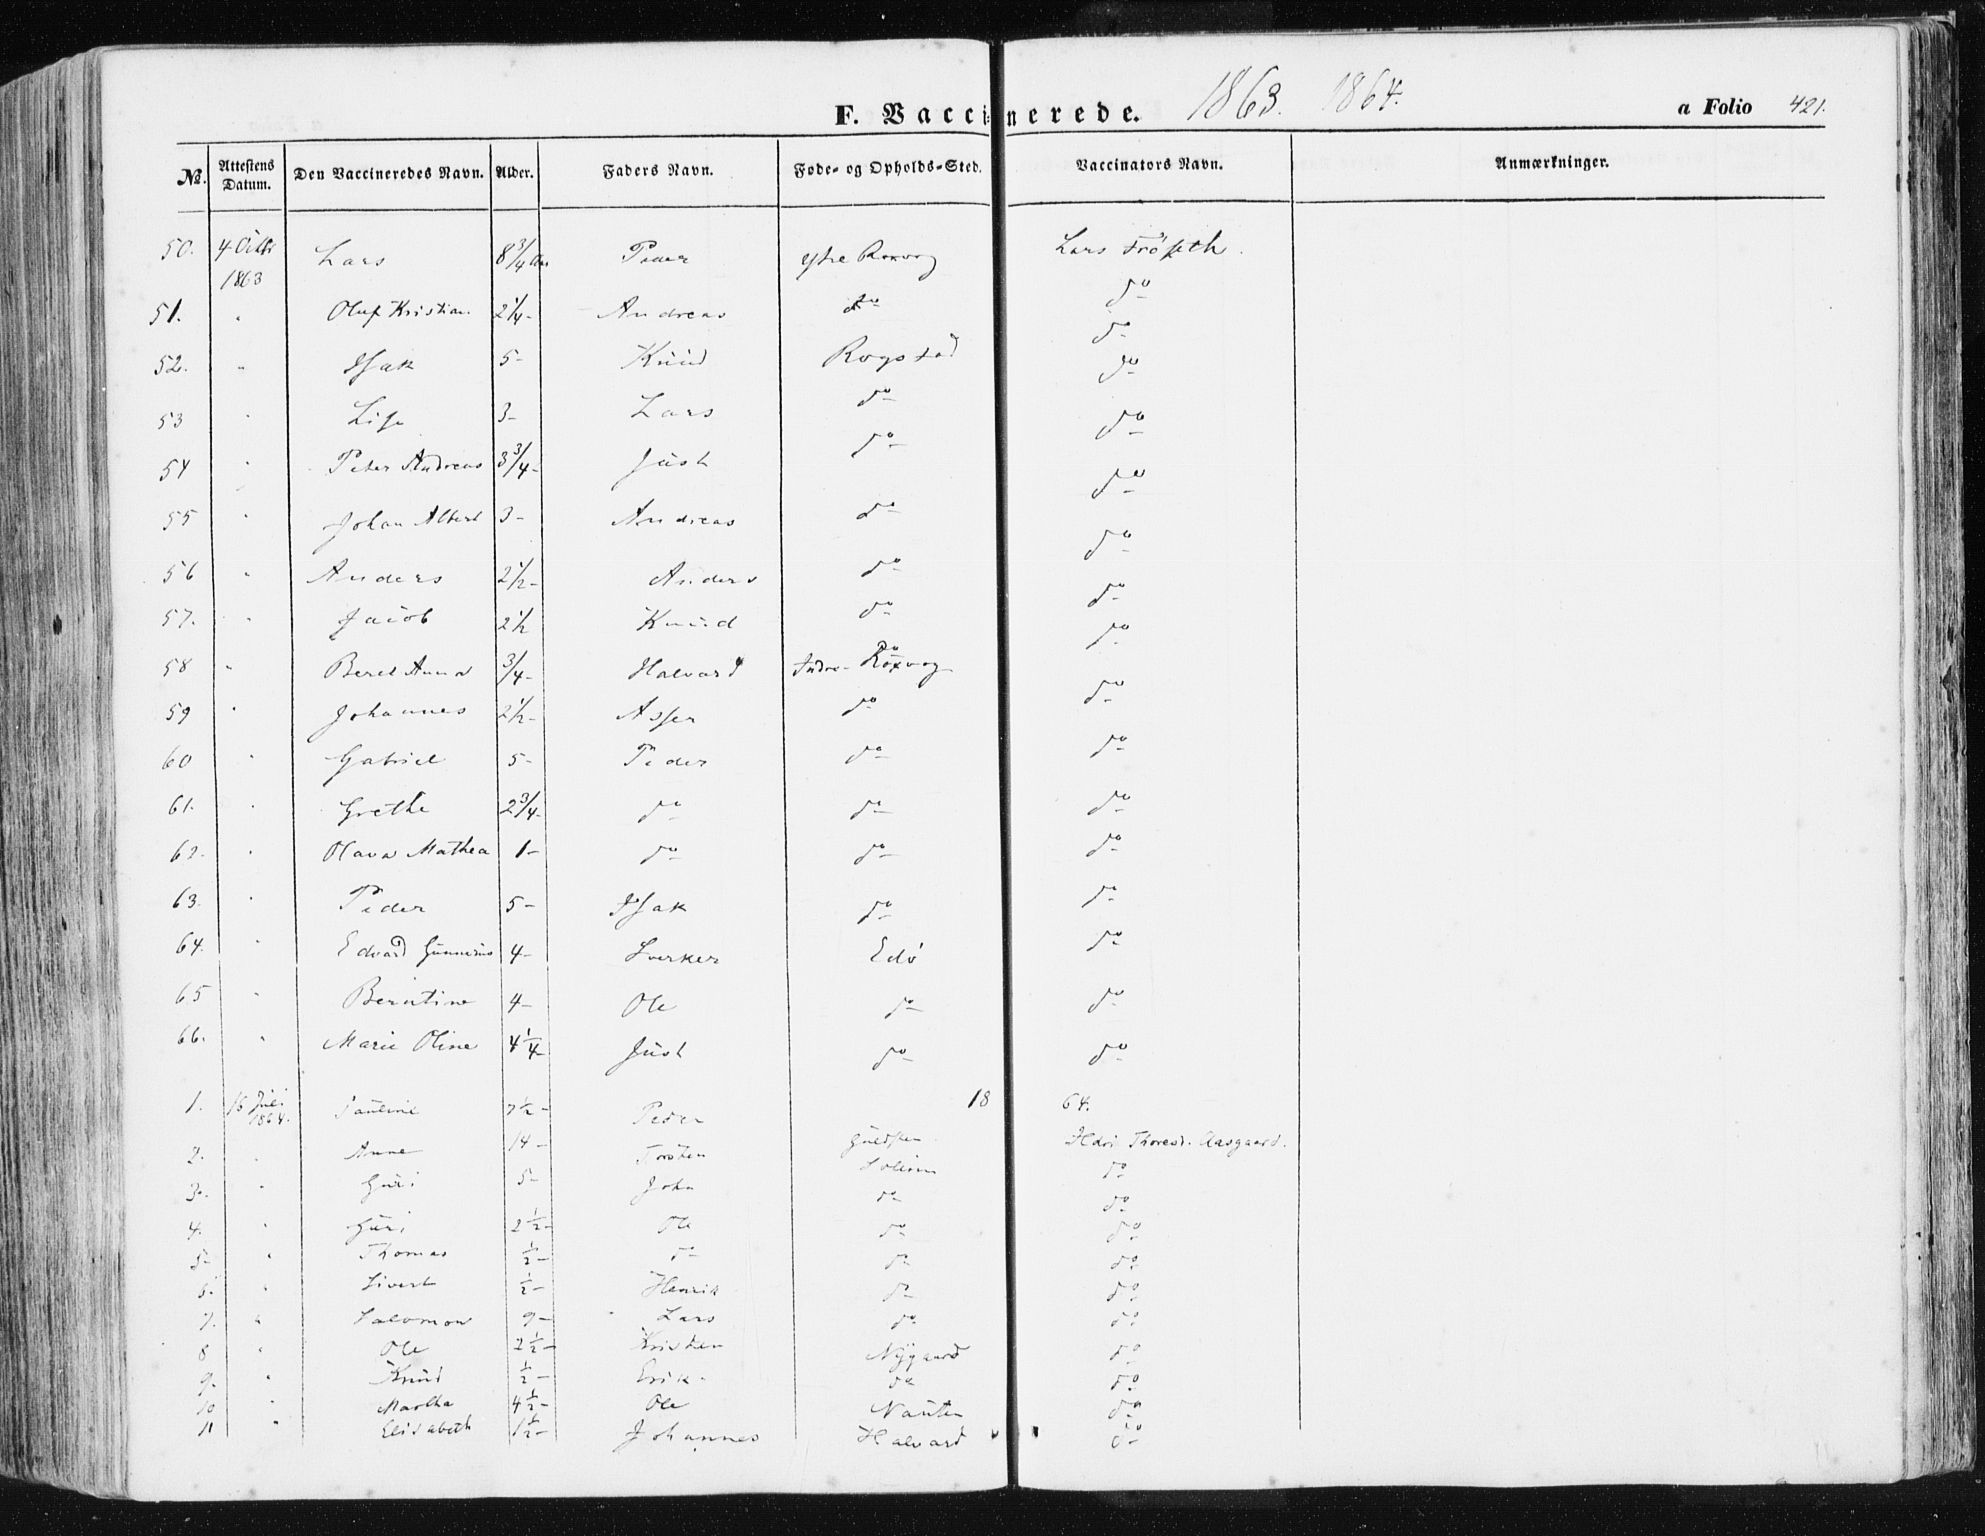 F. Vaccinerede. 1863. 1864. a Folio 421.
No. Attestens Datum. Den Vaccineredes Navn. Alder. Faders Navn. Føde- og Opholds-Sted. Vaccinators Navn. Anmærkninger.
50. 4 1863 Lars 8 3/4 Peder ytre Roxvog Lars Fröseth.
51. " Oluf Kristian 2 1/4 - Andreas do do
52. " Isak 5 - Knud Rogstad do
53 " Lise 3 - Lars do do
54 " Peter Andreas 3 3/4 - Just do do
55 " Johan Albert 3 - Andreas do do
56 " Anders 2 1/2 - Anders do do
57. " Jacob 2 1/2 Knud do do
58 " Beret Anna 3/4 - Halvard Indre Roxvog do
59 " Johannes 2 1/2 - Asser do do
60 " Gabriel 5 - Peder do do
61. " Grethe 2 3/4 - do do do
62. " Olava Mathea 1 - do do do
63. " Peder 5 - Isak do do
64. " Edvard Gunnerius 4 - Sverker Edö do
65 " Berntine 4 - Ole do do
66. " Marie Oline 4 1/4 - Just do do
1864.
1. 16 Juli 1864. Pauline 7 1/2 - Peder Guldsten Thoresd. Aasgaard.
2. " Anne 14 - Torsten do
3. " Guri 5 - John do do
4. " Guri 2 1/2 - Ole do do
5 " Thomas 1/2 - do do do
6. " Sivert 1/2 - Henrik do do
7. " Salomon 9 - Lars do do
8 " Ole 2 1/2 - Kristen Nygaard do
9. " Knud 1/2 - Erik do do
10 " Martha 4 1/2 - Ole Nausten do
11 " Elisabeth 1 1/2 - Johannes Halvard do